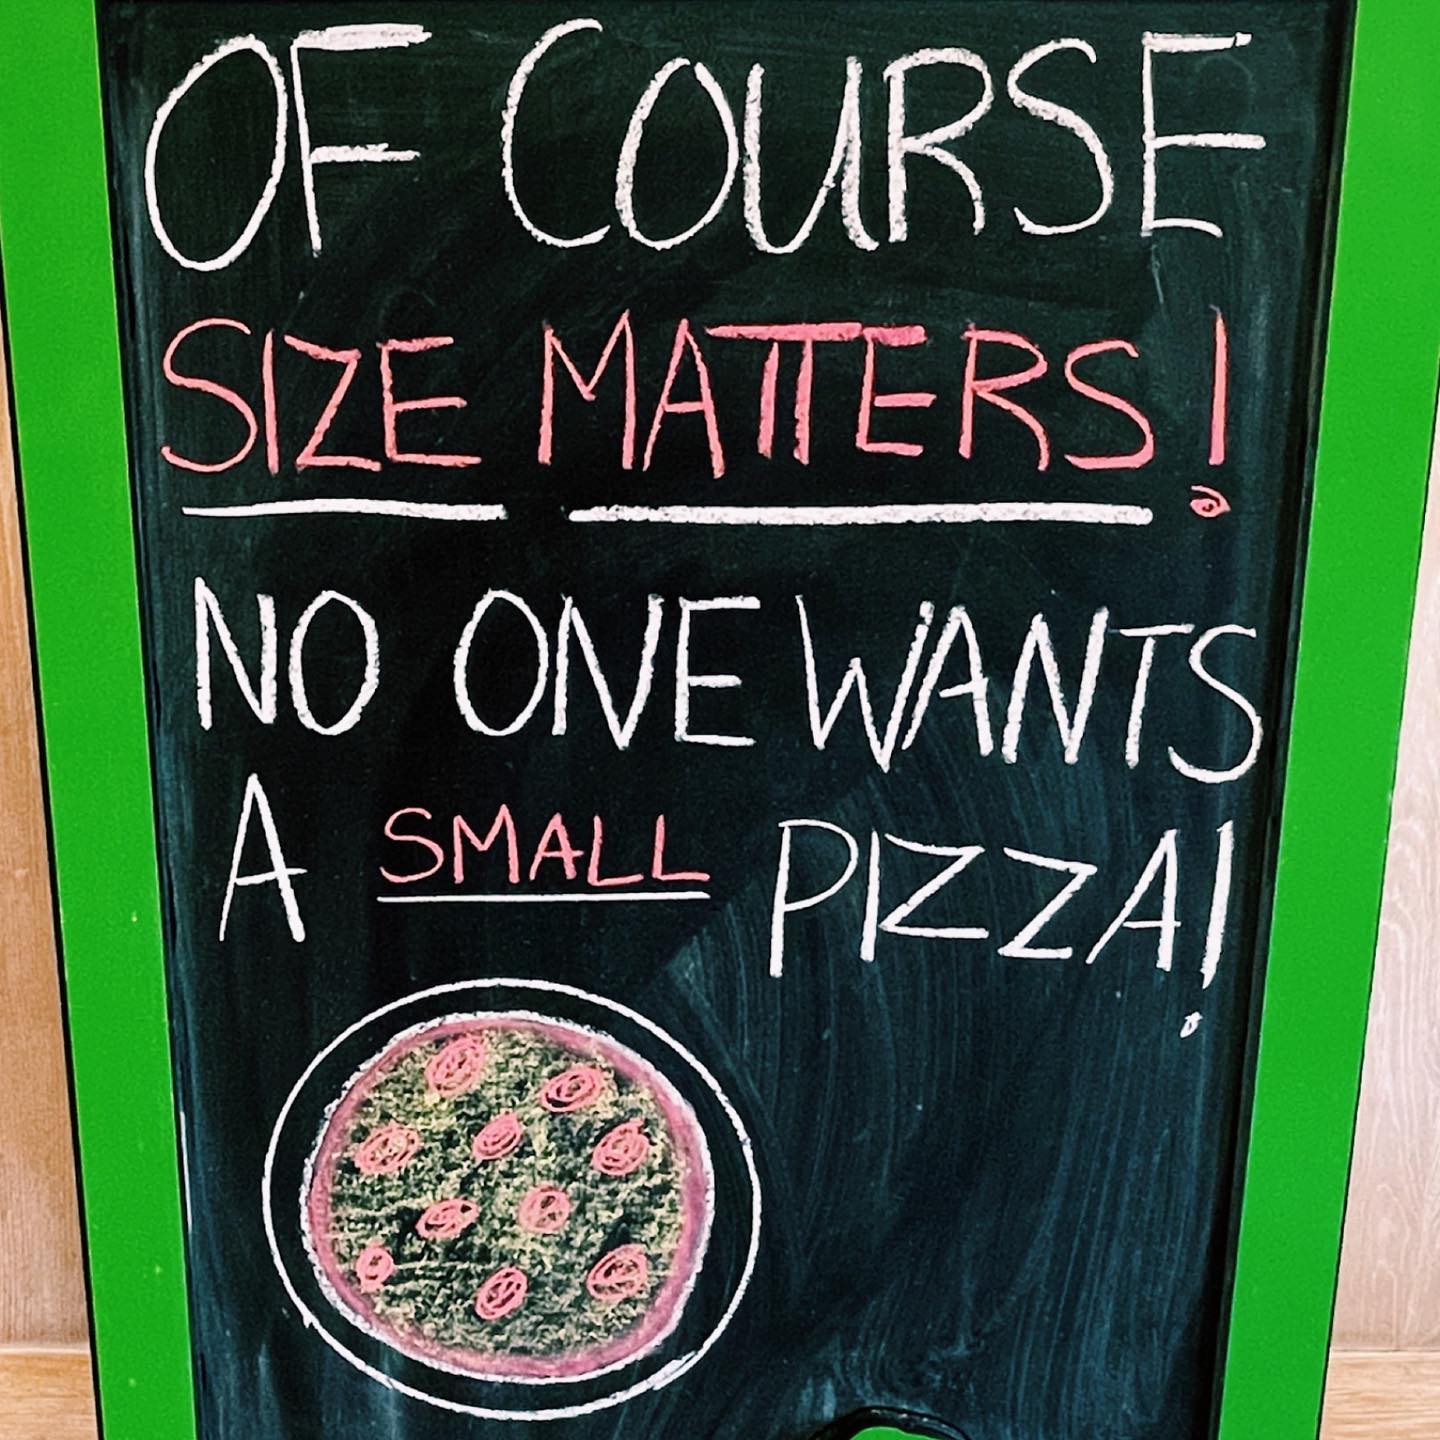 OF COURSE
SIZE MATTERS!
NO ONE WANTS
A SMALL PIZZA!